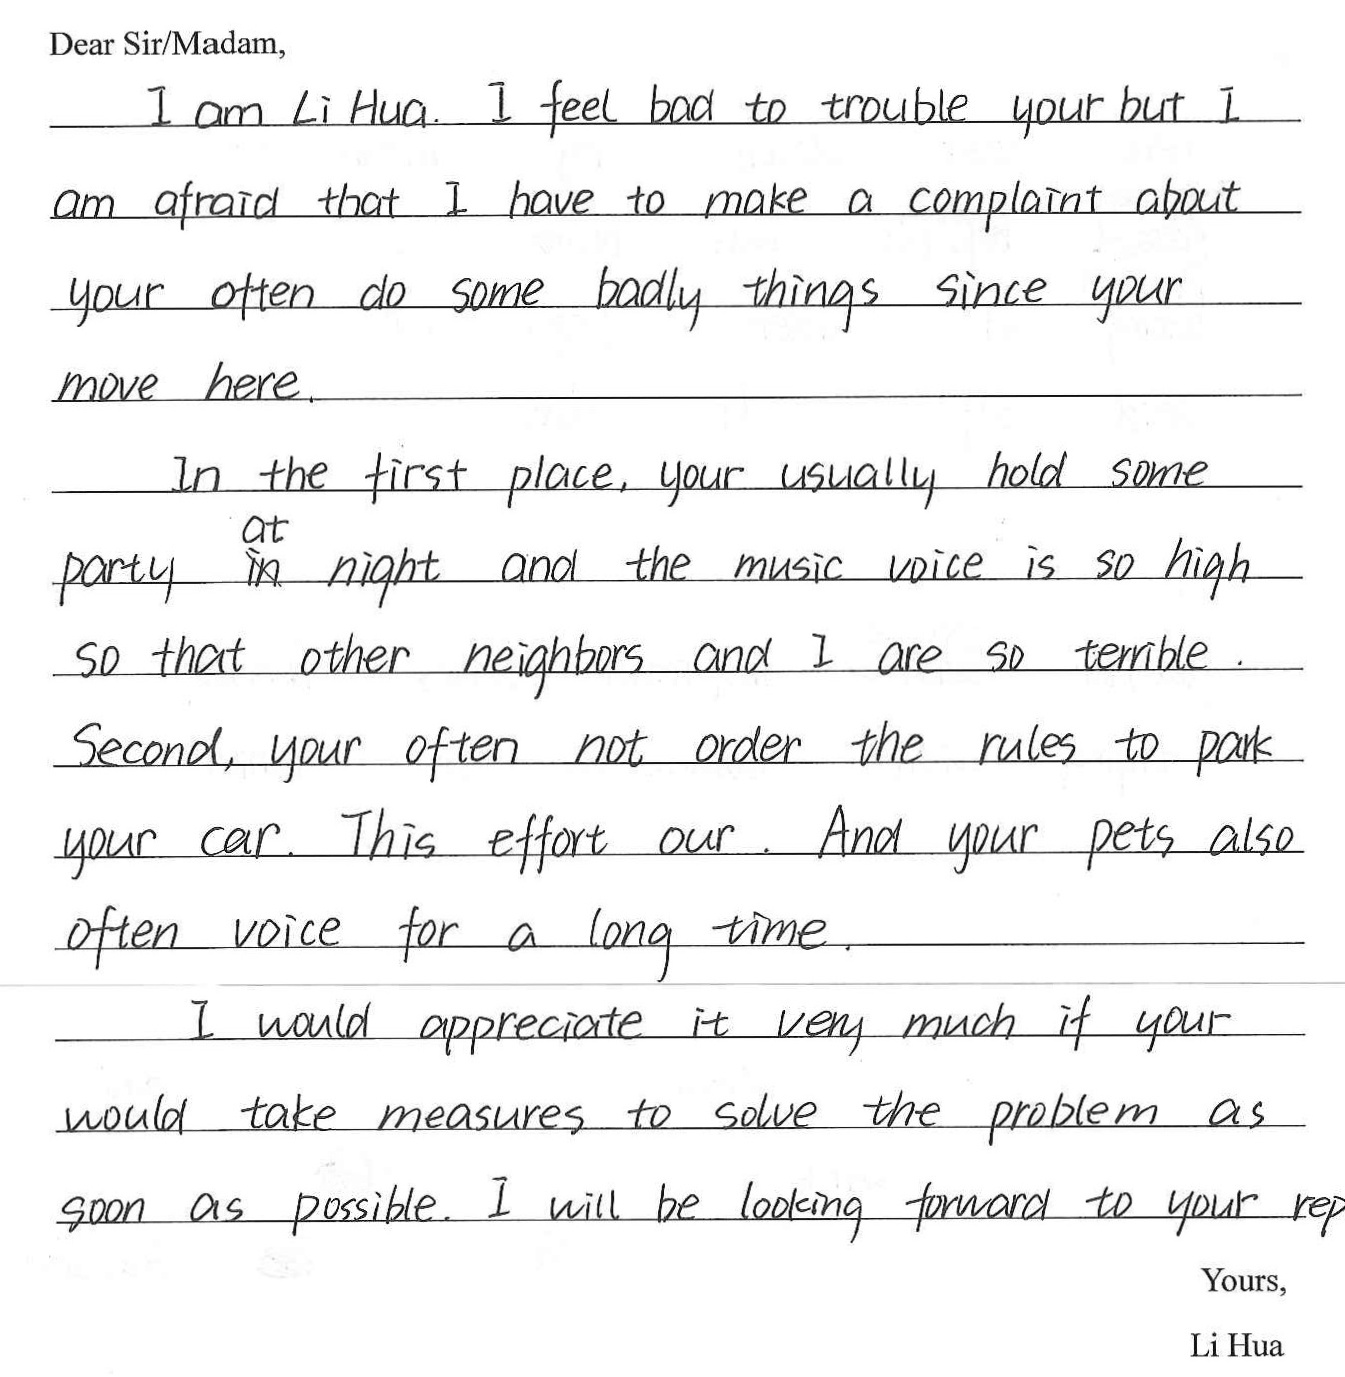 Dear Sir/Madam,
I am Li Hua. I feel bad to trouble your but I
am afraid that I have to make a complaint about
your often do some badly things since your
move here.
In the first place, your usually hold some
at
party in night and the music voice is so high
so that other neighbors and I are so terrible.
Second, your often not order the rules to park
your car. This effort our. And your pets also
often voice for a long time.
I would appreciate it very much if your
would take measures to solve the problem as
soon as possible. I will be looking forward to your rep
Yours,
Li Hua